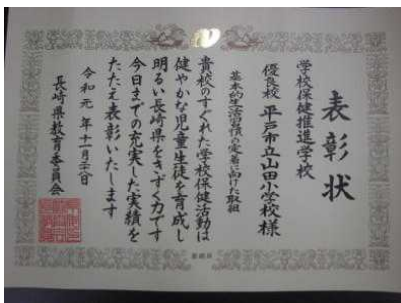 表彰状
学校保健推進学校
優良校 平戸市立山田小学校様
基本的生活習慣の定着に向けた取組
貴校のすぐれた学校保健活動は
健やかな児童生徒を育成し
明るい長崎県をきずく力です
今日までの充実した実績を
たたえ表彰いたします
令和元年十一月二十一日
長崎県教育委員会